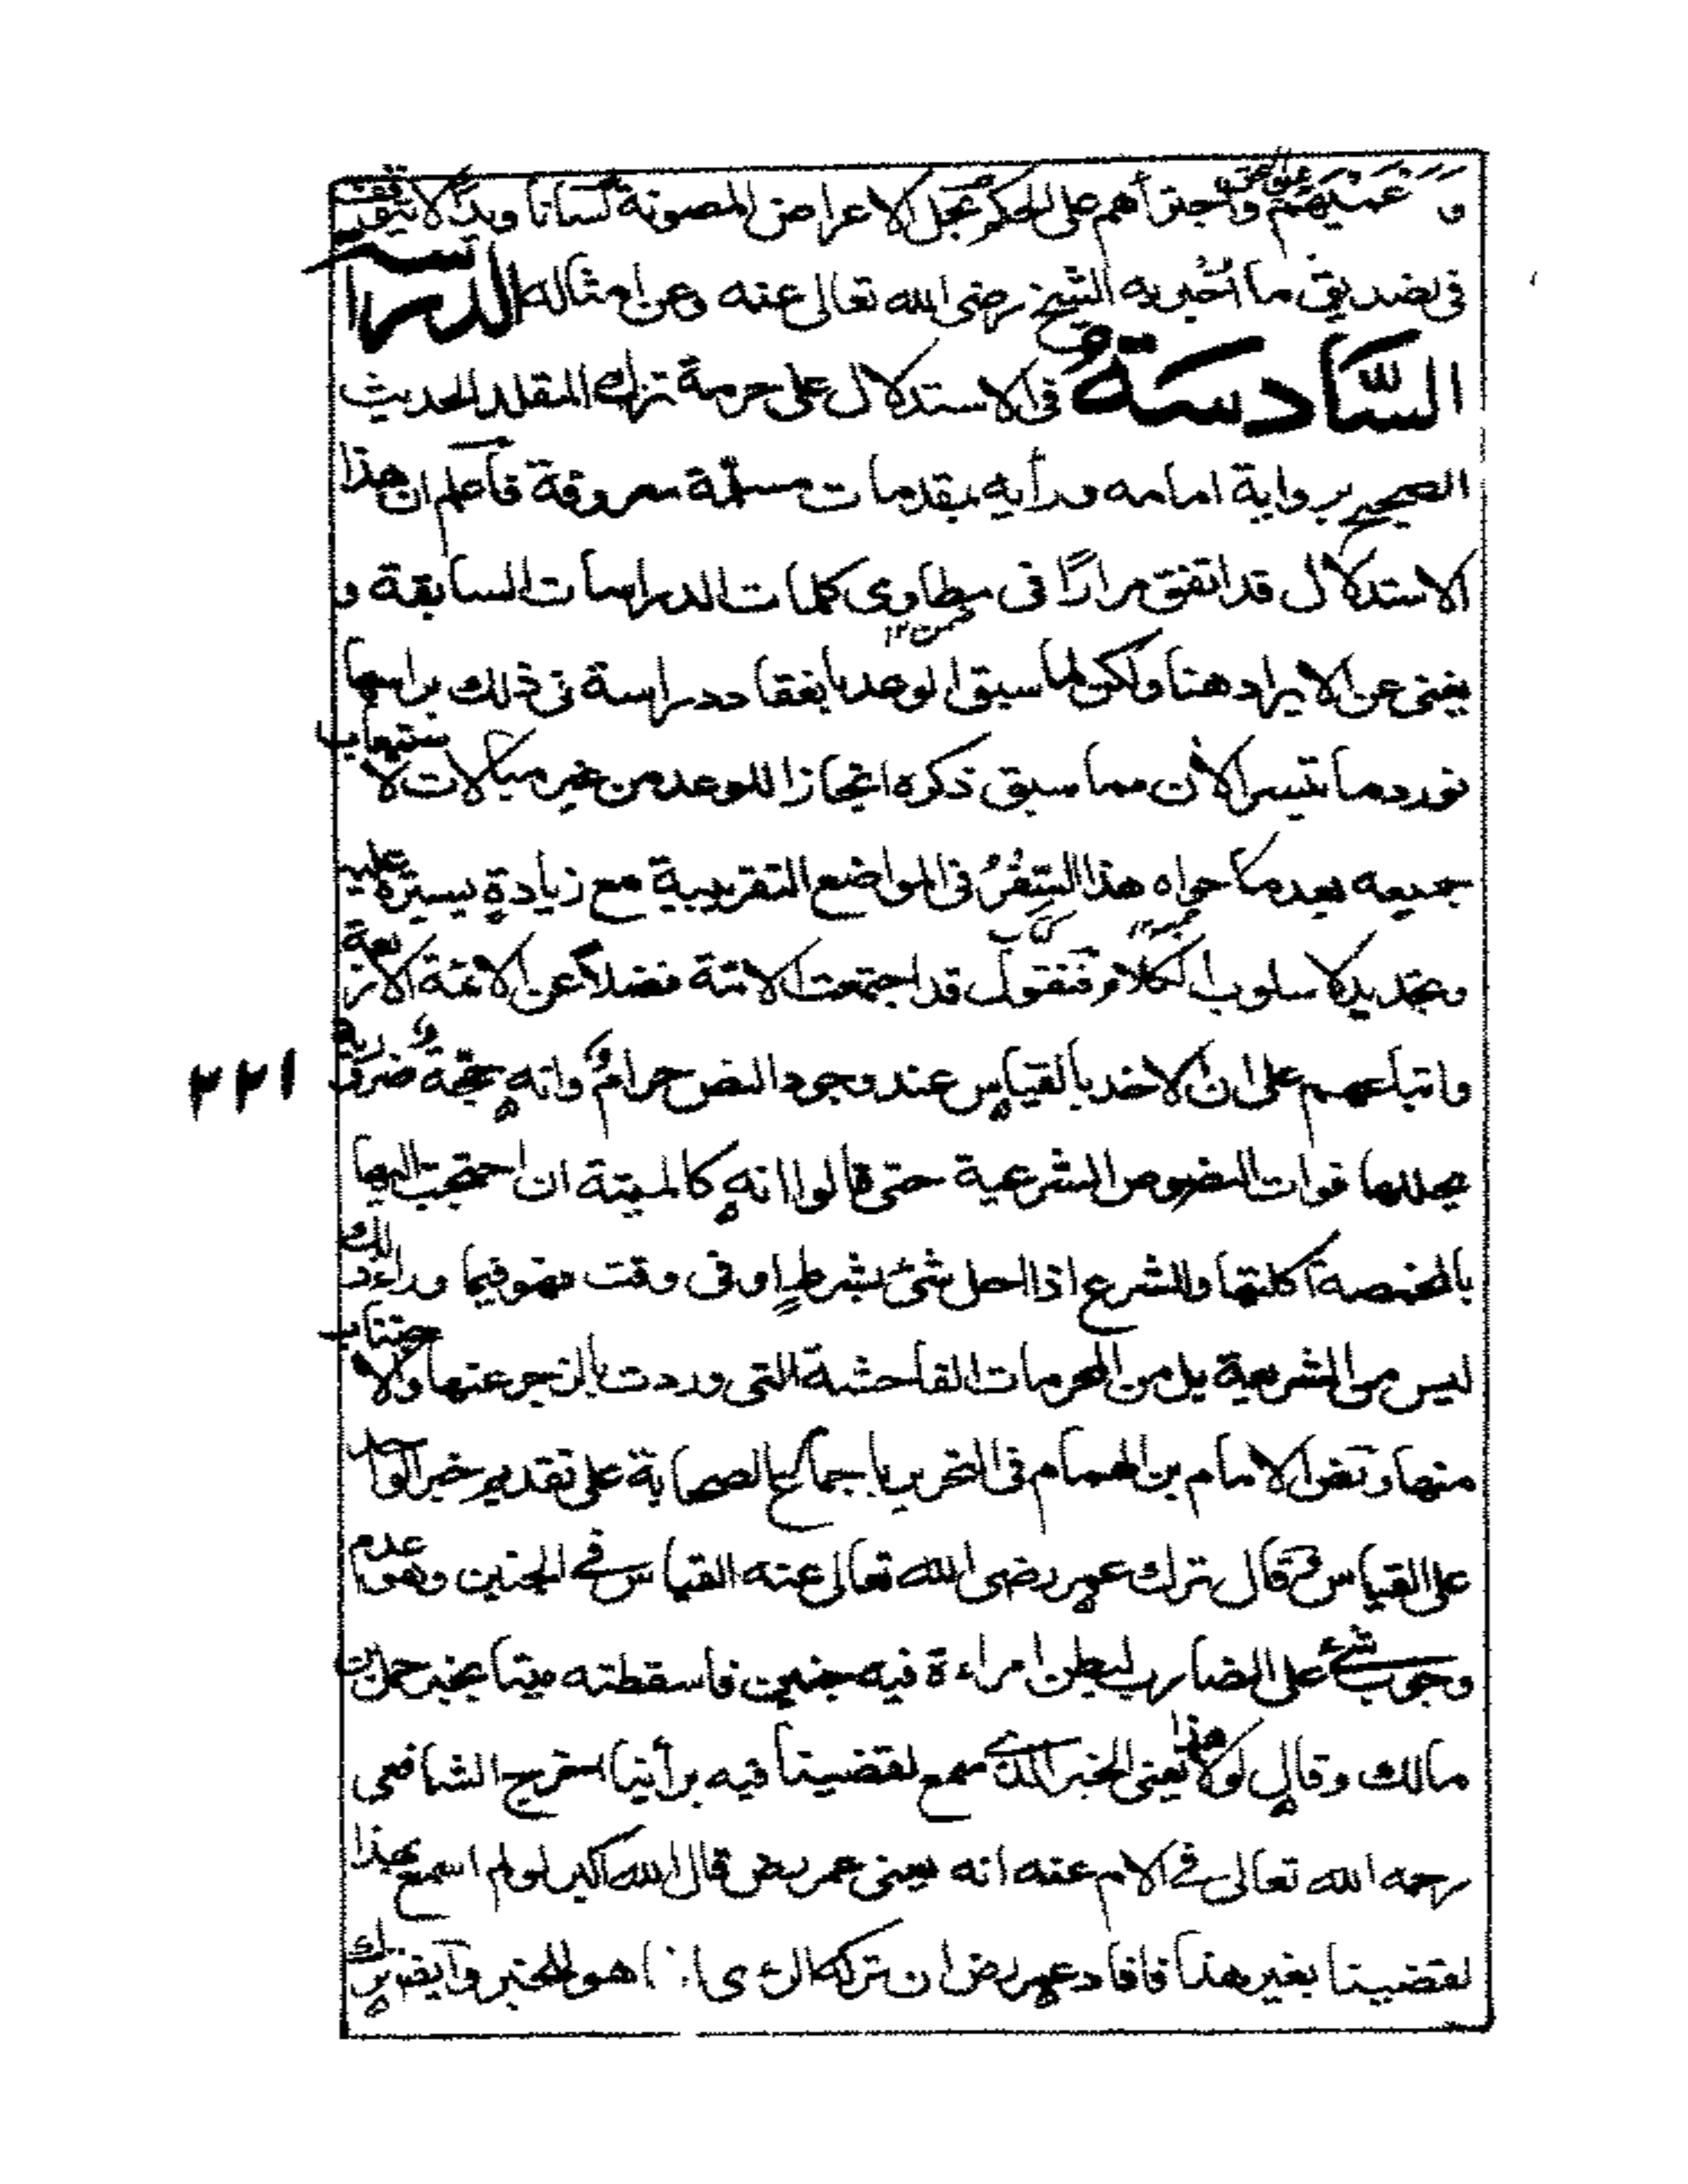 و غيبتهم واجترأهم على الحكم بحل الاعراض المصونة لسانا ويدا لا يتوقف
فى تصديق ما اخبر به الشيخ رضى الله تعالى عنه وعن امثاله الدراسة
السَّادسَةُ فى الاستدلال على حرمة ترك المقلد الحديث
الصحيح برواية امامه ورأيه بمقدمات مسلمة معروفة فاعلم ان هذا
الاستدلال قد اتفق مرارًا فى مطاوى كلمات الدراسات السابقة و
يغنى عن الايراد هنا ولكن لما سبق الوعد بانعقاد دراسة فى ذلك براسها
نورد ما تيسر الأن مما سبق ذكره انجازا للوعد من غير مبالات لا ستيعاب
جميعه بعد ما حواه هذا السِّفْرُ فى المواضع التقريبية مع زيادةٍ يسيرة عليه
وتجديد لاسلوب الكلام فنقول قد اجتمعت الامة فضلا عن الائمة الاربعة
واتباعهم على ان الاخذ بالقياس عند وجود النص حرامٌ وانه حجة ضرورية
٢٢١
يحللها فوات النصوص الشرعية حتى قالوا انه كالميتة ان احتجت اليها
بالمخمصة اكلتها والشرع اذا احل شئ بشرطٍ او فى وقت فهو فيما وراء ذلك
ليس من الشرعية بل من المحرمات الفاحشة التى وردت بالزجر عنها والاجتناب
منها ونص الامام بن الهمام فى التحرير باجماع الصحابة على تقديم خبر الواحد
على القياس قال ترك عمر رضى الله تعالى عنه القياس فى الجنين وهو عدم
وجوب شئ على الضارب لبطن امراءة فيه جنين فاسقطته ميتا بخبر حمل بن
مالك وقال لولا هذا يعنى الخبر الذى سمع لقضينا فيه برأينا اخرج الشافعى
رحمه الله تعالى فى الام عنه انه يعنى عمر رض قال الله اكبر لو لم اسمع بهذا
لقضينا بغير هذا فافاد عمر رض ان تركه الرى هو الخبر وايضا ترك